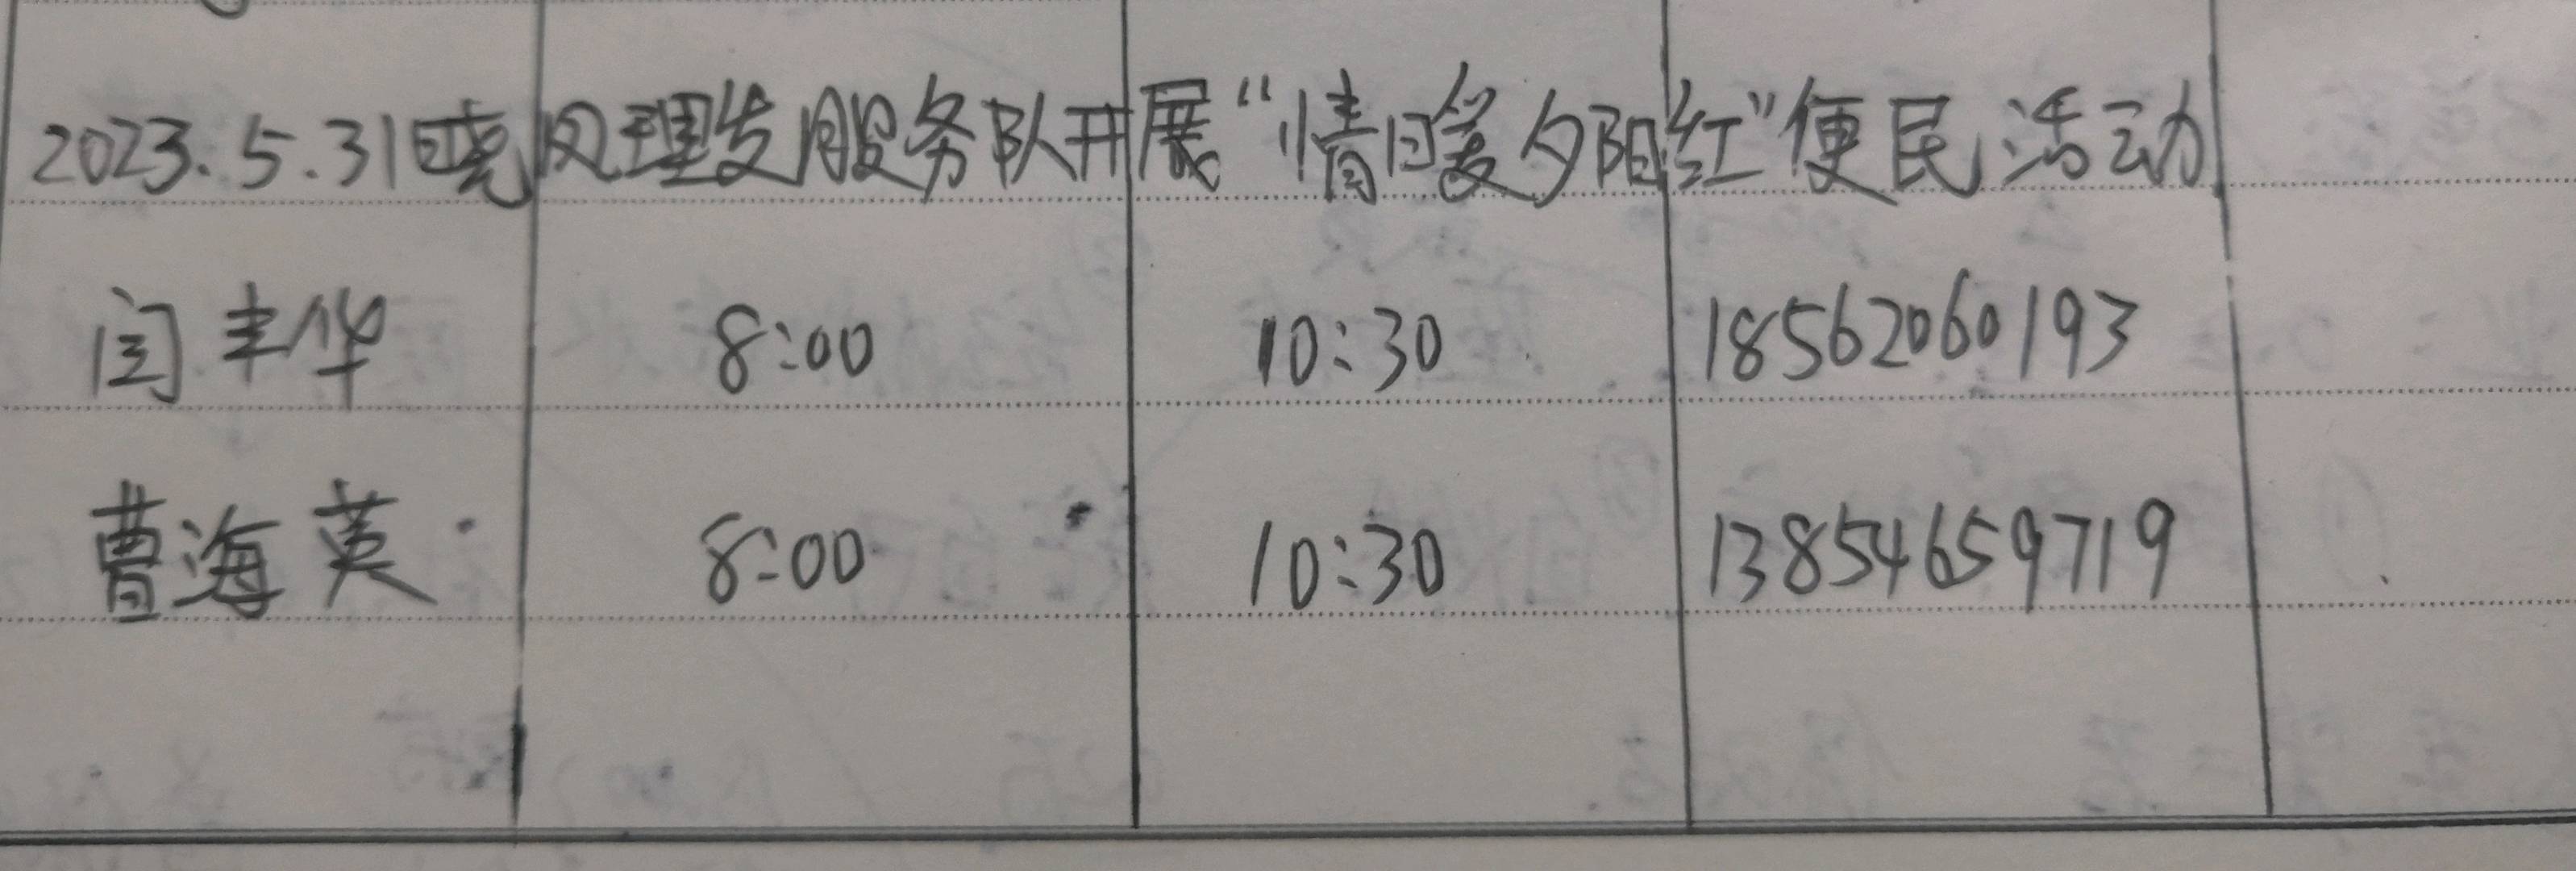 2023.5.31日晓风理发服务队开展“情暖夕阳红”便民活动
闫丰华 8:00 10:30 18562060193
曹海英 8:00 10:30 13854659719